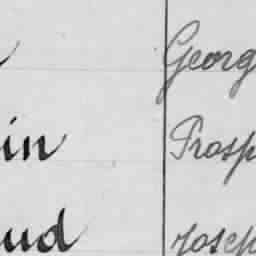 Georg
in Prosp
ud Joseph